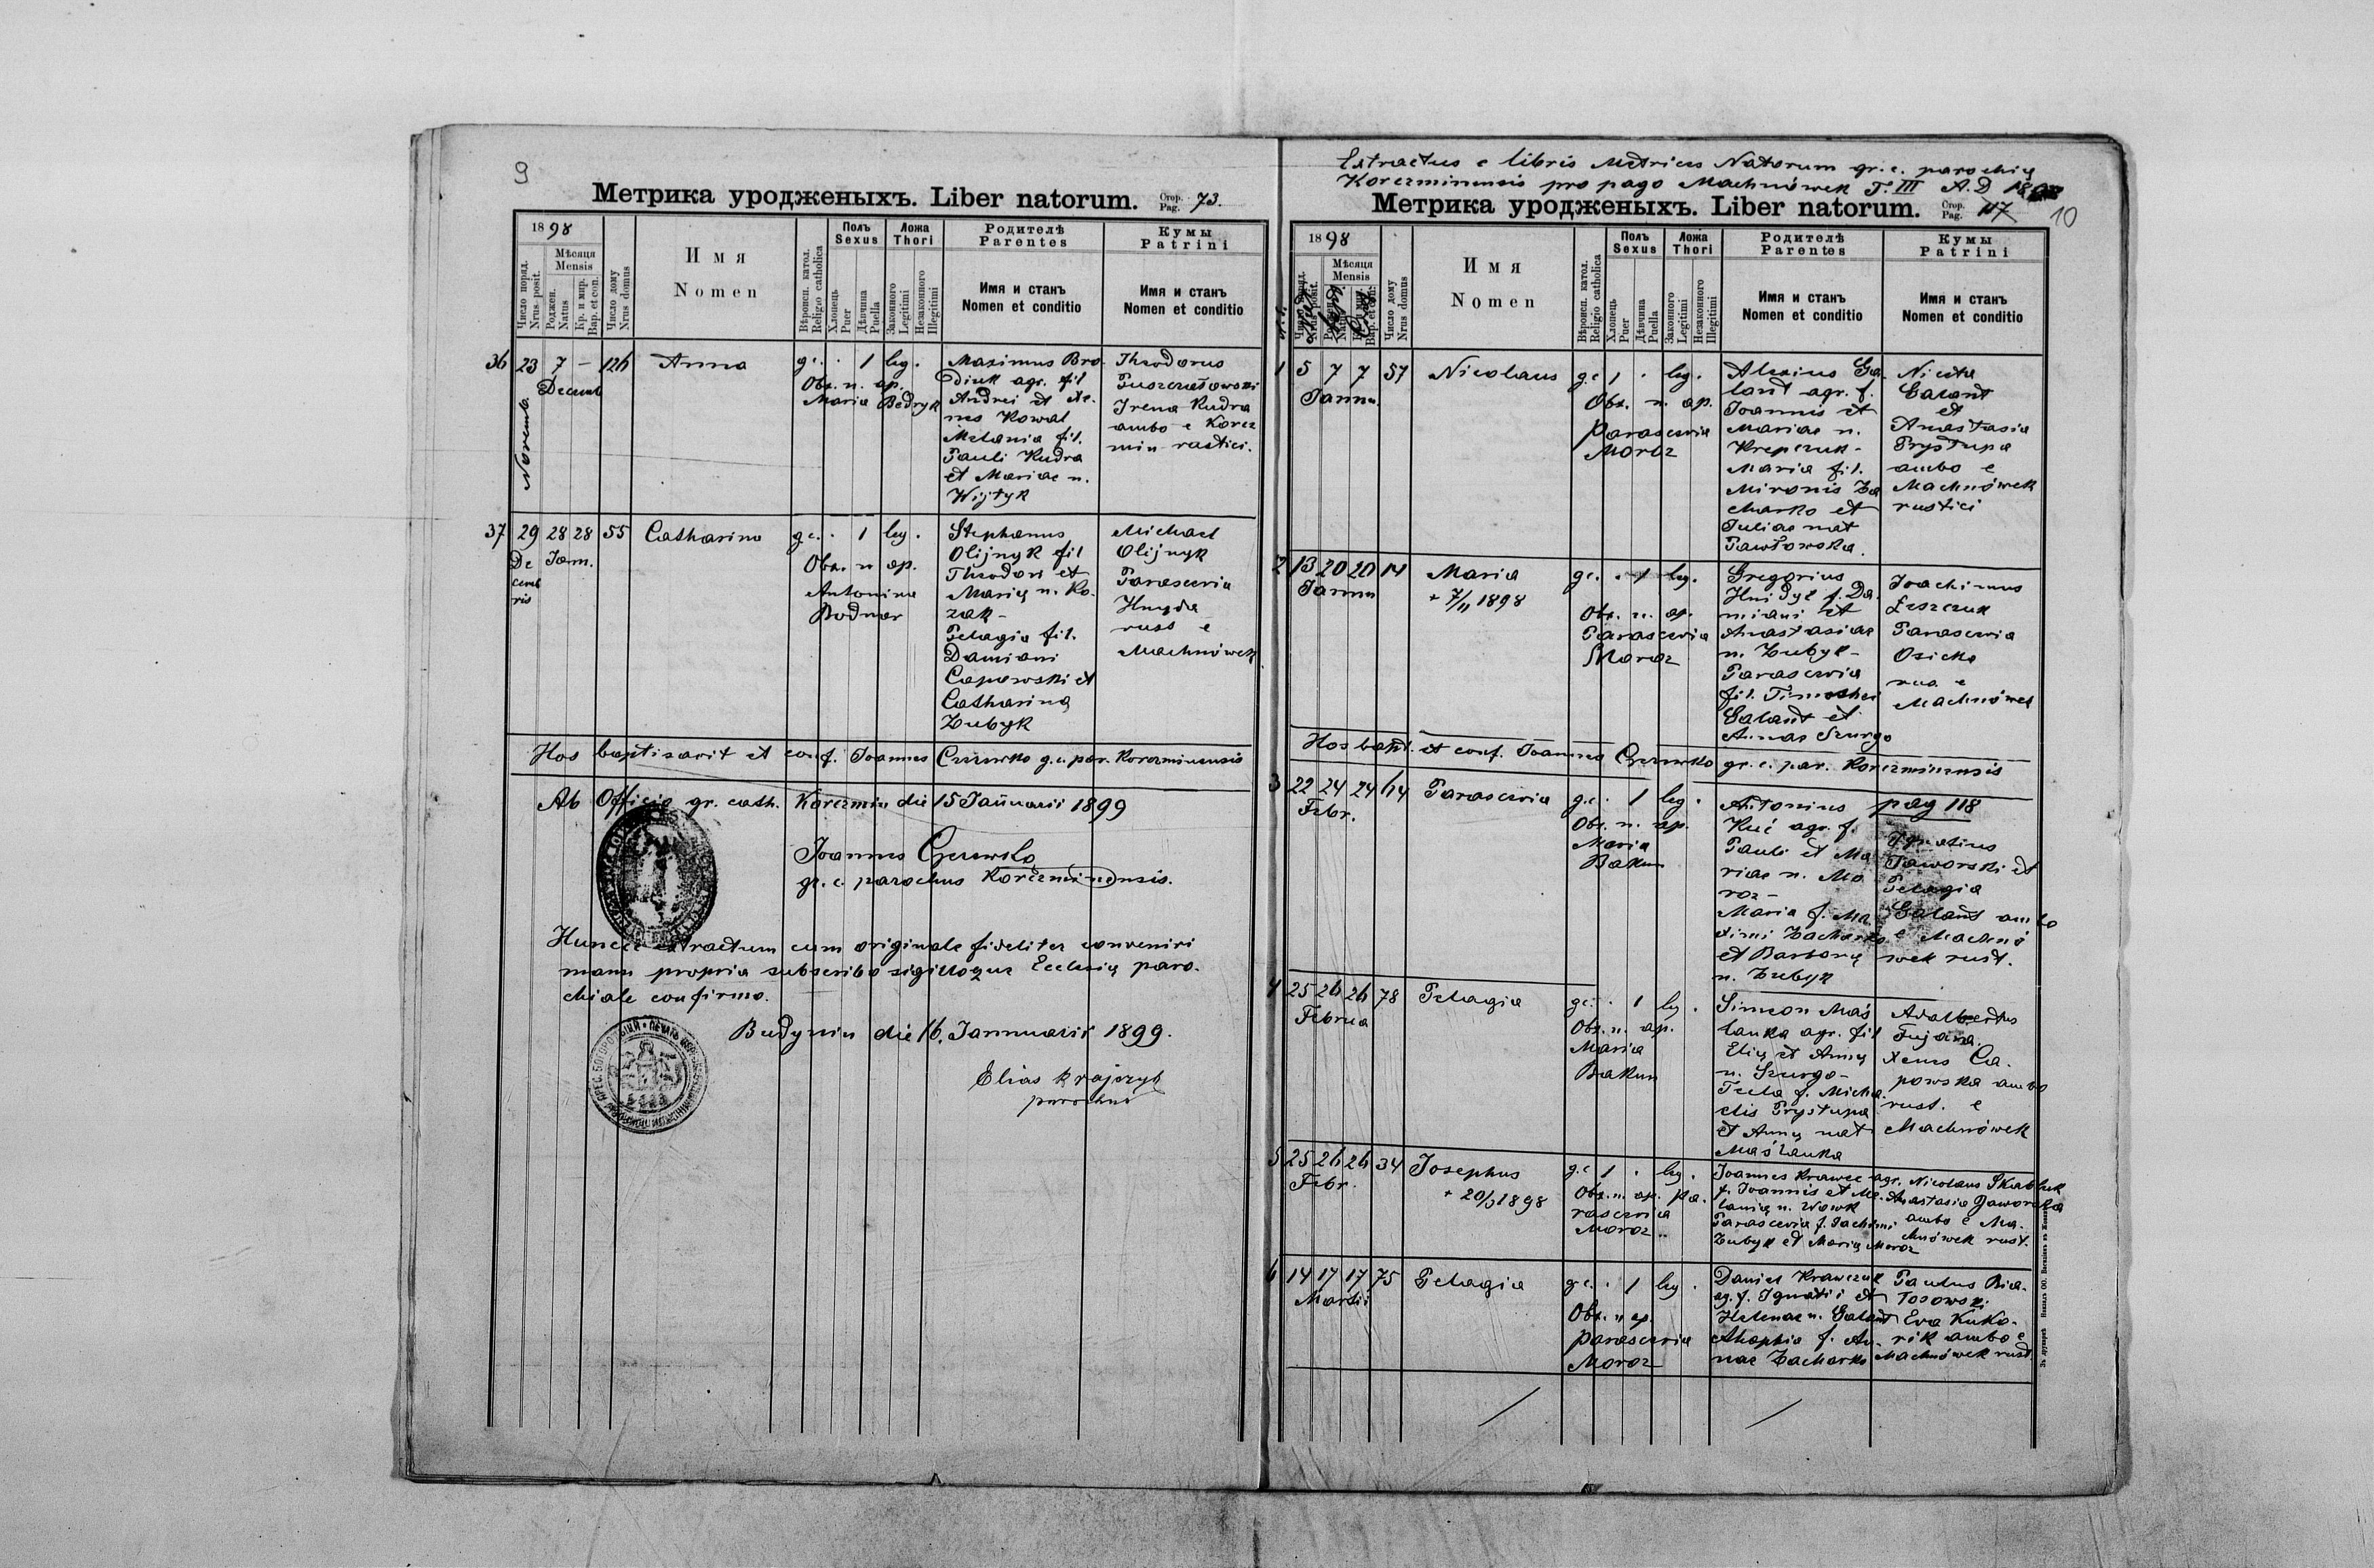 9
Метрика уродженыхъ. Liber natorum. Стор. Pag. 73.
1898
Число поряд. Nrus posit.
Мѣсяця Mensis
Роджен. Natus
Кр. и мир. Bap. et con.
Число дому Nrus domus
Имя
Nomen
Вѣроисп. катол. Religio catholica
Полъ Sexus
Хлопець Puer
Дѣвчина Puella
Ложа Thori
Законного Legitimi
Незаконного Illegitimi
Родителѣ Parentes
Имя и станъ
Nomen et conditio
Кумы Patrini
Имя и станъ
Nomen et conditio
36 23 7 – 126 Anna gc. · 1 leg.
Novemb. Decemb
Obs. n. ap.
Maria Bedryk
Maximus Bro-
diuk agr. fil
Andrei et Xe-
nes Kowal
Melania fil.
Pauli Kudra
et Mariae n.
Wijtyk
Theodorus
Irena Kudra
ambo e Korcz
min rustici.
37 29 28 28 55 Catharina gc. · 1 leg.
De
cemb
ris
Jam.
Obs. n ap.
Antonina
Bodnar
Stephanus
Olijnyk fil
Theodori et
Marię n. Ko-
zak –
Pelagia fil.
Damiani
Capowski et
Catharinę
Zubyk
Michael
Olijnyk
Parascevia
Hnyda
rust e
Machnówek
Hos baptisavit et conf. Joannes Czerewko g.c. par. Korczminensis
Ab Officio gr. cath. Korczmin die 15 Januarii 1899
Joannes Czerewko
gr. c. parochus Korczminensis.
Hunce extractum cum originale fideliter conveniri
manu propria subscribo sigilloque Ecclesię paro-
chiale confirmo.
Budynin die 16. Jannuarii 1899.
Elias Krajczyk
parochus
Extractus e libris Metricus Natorum gr. c. parochię
Korczminensis pro pago Machnówek T. III A.D
Метрика уродженыхъ. Liber natorum. Стор. Pag. 117
10
1898
Число поряд. Nrus posit.
Мѣсяця Mensis
Число дому Nrus domus
Имя
Nomen
Вѣроисп. катол. Religio catholica
Полъ Sexus
Хлопець Puer
Дѣвчина Puella
Ложа Thori
Законного Legitimi
Незаконного Illegitimi
Родителѣ Parentes
Имя и станъ
Nomen et conditio
Кумы Patrini
Имя и станъ
Nomen et conditio
1 5 7 7 57 Nicolaus gc 1 · leg.
Jannu.
Obs. n. ap.
Parascevia
Moroz
Alexius Ga-
lant agr. f.
Joannis et
Mariae n.
Krepczuk –
Maria fil.
Mironis Za
charko et
Juliae nat
Pawłowska.
Niceta
Galant
et
Anastasia
Prystupa
ambo e
Machnówek
rustici
2 13 20 20 14 Maria gc. · 1 leg.
Jannu
+ 7/11 1898
Obs. n. ap.
Parascevia
Moroz
Gregorius
Hnidyk f. Da-
miani et
Anastasiae
n. Zubyk –
Parascevia
fil. Timothei
Galant et
Annae Szurgo
Joachimus
Leszczuk
Parascevia
Osicka
rus. e
Machnówek
Hos bapt. et conf. Joannes Czerewko gr. c. par. Korczminensis
3 22 24 24 64 Parascevia gc. · 1 leg.
Febr.
Obs. n. ap.
Maria
Bakun
Antonius
Kuć agr. f.
Pauli et Ma
riae n. Mo
roz –
Maria f. Ma
ximi Zacharko
et Barbarę
n. Zubyk
pag 118
Ignatius
Jaworski et
Pelagia
Galant ambo
e Machnó
wek rust.
4 25 26 26 78 Pelagia gc. · 1 leg.
Februa
Obs. n. ap.
Maria
Bakun
Simeon Maś
lanka agr. fil
Elię et Annę
n. Szurgo –
Tecla f. Micha
elis Prystupa
et Annę nat
Maślanka
Adalbertus
Xenes Ca-
powska ambo
rust. e
Machnówek
5 25 26 26 34 Josephus gc 1 · leg.
Febr.
+ 20/3 1898
Obs. n. ap. Pa-
rascevia
Moroz
Joannes Krawec agr.
f. Joannis et Me-
lanię n. Wowk
Parascevia f. Jachimi
Zubyk et Marię Moroz
Nicolaus Skabluk
Anastasia Jaworska
ambo e Ma-
chnówek rust.
6 14 17 17 75 Pelagia gc. · 1 leg.
Martii
Obs. n ap.
Parascevia
Moroz
Daniel Krawczuk
ag. f. Ignatii et
Helenae n. Galant
Ahaphia f. An-
nae Zacharko
Paulus Bia-
łosowski
Eva Kuko-
rik ambo e
Machnówek rust.